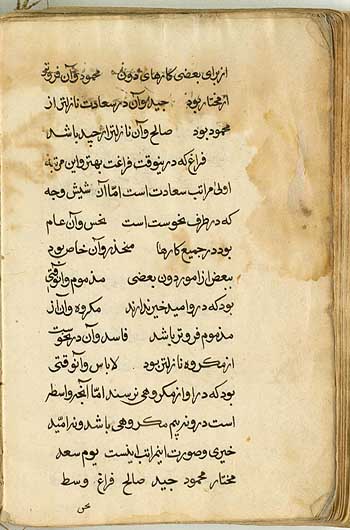 از برای بعضی کارهای دون محمود و آن فروتر
از مختار بود جید و آن در سعادت نازلتر از
محمود بود صالح و آن نازلتر از جید باشد
فراغ که درینوقت فراغت بهتر و این مرتبه
اولی مراتب سعادت است اما آن شیش وجه
که در طرف نحوست است نحس و آن عام
بود در جمیع کارها منحذر و آن خاص بود
ببعض از امور دون بعضی مذموم و آنوقتی
بود که درو امید خیر ندارند مکروه و آن از
مذموم فروتر باشد فاسد و آن در نحوست
از مکروه نازلتر بود لاباس و آنوقتی
بود که در او از مکروهی نرسند اما آنچه واسطه
است درو نه بیم مکروهی باشد و نه امید
خیری و صورت اینمراتب اینست یوم سعد
مختار محمود جید صالح فراغ وسط
نحس